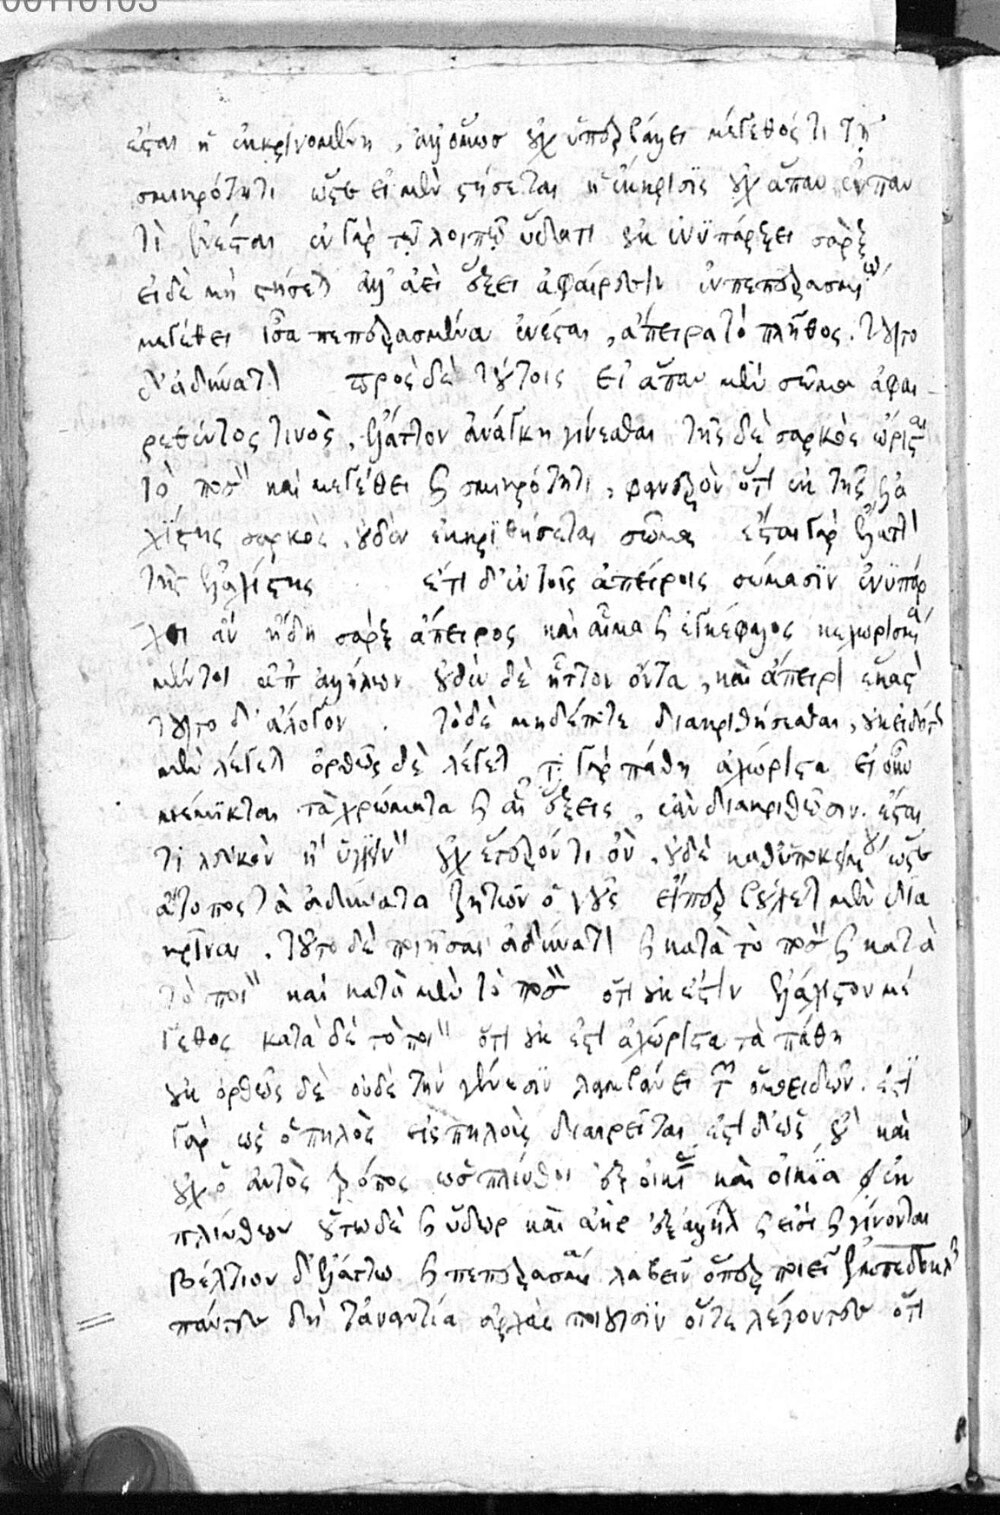 00110103
ἔσται ἡ ἐκκρινομένη, ἀλλ' ὅμως οὐχ ὑπερβάλλει μέγεθός τι τῇ
σμικρότητι ὥστ' εἰ μὲν στήσεται ἡ ἔκκρισις οὐχ ἅπαν ἐν παν
τὶ ἐνέσται ἐν γὰρ τῷ λοιπῷ ὕδατι οὐκ ἐνυπάρξει σὰρξ
εἰ δὲ μὴ στήσεται ἀλλ' ἀεὶ ἕξει ἀφαίρεσιν ἐν πεπερασμένῳ
μεγέθει ἴσα πεπερασμένα ἐνέσται, ἄπειρα τὸ πλῆθος. τοῦτο
δ' ἀδύνατον πρὸς δὲ τούτοις εἰ ἅπαν μὲν σῶμα ἀφαι
ρεθέντος τινὸς, ἔλαττον ἀνάγκη γίνεσθαι τῆς δὲ σαρκὸς ὥρισται
τὸ ποσὸν καὶ μεγέθει καὶ σμικρότητι, φανερὸν ὅτι ἐκ τῆς ἐλα
χίστης σαρκὸς, οὐδὲν ἐκκριθήσεται σῶμα ἔσται γὰρ ἔλαττον
τῆς ἐλαχίστης ἔτι δ' ἐν τοῖς ἀπείροις σώμασιν ἐνυπάρ
χοι ἂν ἤδη σὰρξ ἄπειρος καὶ αἷμα καὶ ἐγκέφαλος κεχωρισμένα
μέντοι ἀπ' ἀλλήλων οὐδὲν δὲ ἧττον ὄντα, καὶ ἄπειρον ἕκαστον
τοῦτο δ' ἄλογον. τὸ δὲ μηδέποτε διακριθήσεσθαι, οὐκ εἰδότως
μὲν λέγεται ὀρθῶς δὲ λέγεται τὰ γὰρ πάθη ἀχώριστα εἰ οὖν
μέμικται τὰ χρώματα καὶ αἱ ἕξεις, ἐὰν διακριθῶσιν. ἔσται
τι λευκὸν ἢ ὑγιεινὸν οὐχ ἕτερόν τι ὂν, οὐδὲ καθ' ὑποκειμένου ὥστε
ἄτοπος τὰ ἀδύνατα ζητῶν ὁ νοῦς εἴπερ βούλεται μὲν δια
κρῖναι. τοῦτο δὲ ποιῆσαι ἀδύνατον καὶ κατὰ τὸ ποσὸν καὶ κατὰ
τὸ ποιὸν καὶ κατὰ μὲν τὸ ποσὸν ὅτι οὐκ ἔστιν ἐλάχιστον μέ
γεθος κατὰ δὲ τὸ ποιὸν ὅτι οὐκ ἔστι ἀχώριστα τὰ πάθη
οὐκ ὀρθῶς δὲ οὐδὲ τὴν γένεσιν λαμβάνει τῶν ὁμοειδῶν. ἔστι
γὰρ ὡς ὁ πηλὸς εἰς πηλοὺς διαιρεῖται ἔστι δ' ὡς οὔ καὶ
οὐχ ὁ αὐτὸς τρόπος ὡς πλίνθοι ἐξ οἰκίας καὶ οἰκία ἐκ
πλίνθων οὕτω δὲ καὶ ὕδωρ καὶ ἀὴρ ἐξ ἀλλήλων καὶ εἰσὶ καὶ γίνονται
βέλτιον δ' ἐλάττω καὶ πεπερασμένα λαβεῖν ὅπερ ποιεῖ Ἐμπεδοκλῆς
πάντες δὴ τἀναντία ἀρχὰς ποιοῦσιν οἵ τε λέγοντες ὅτι